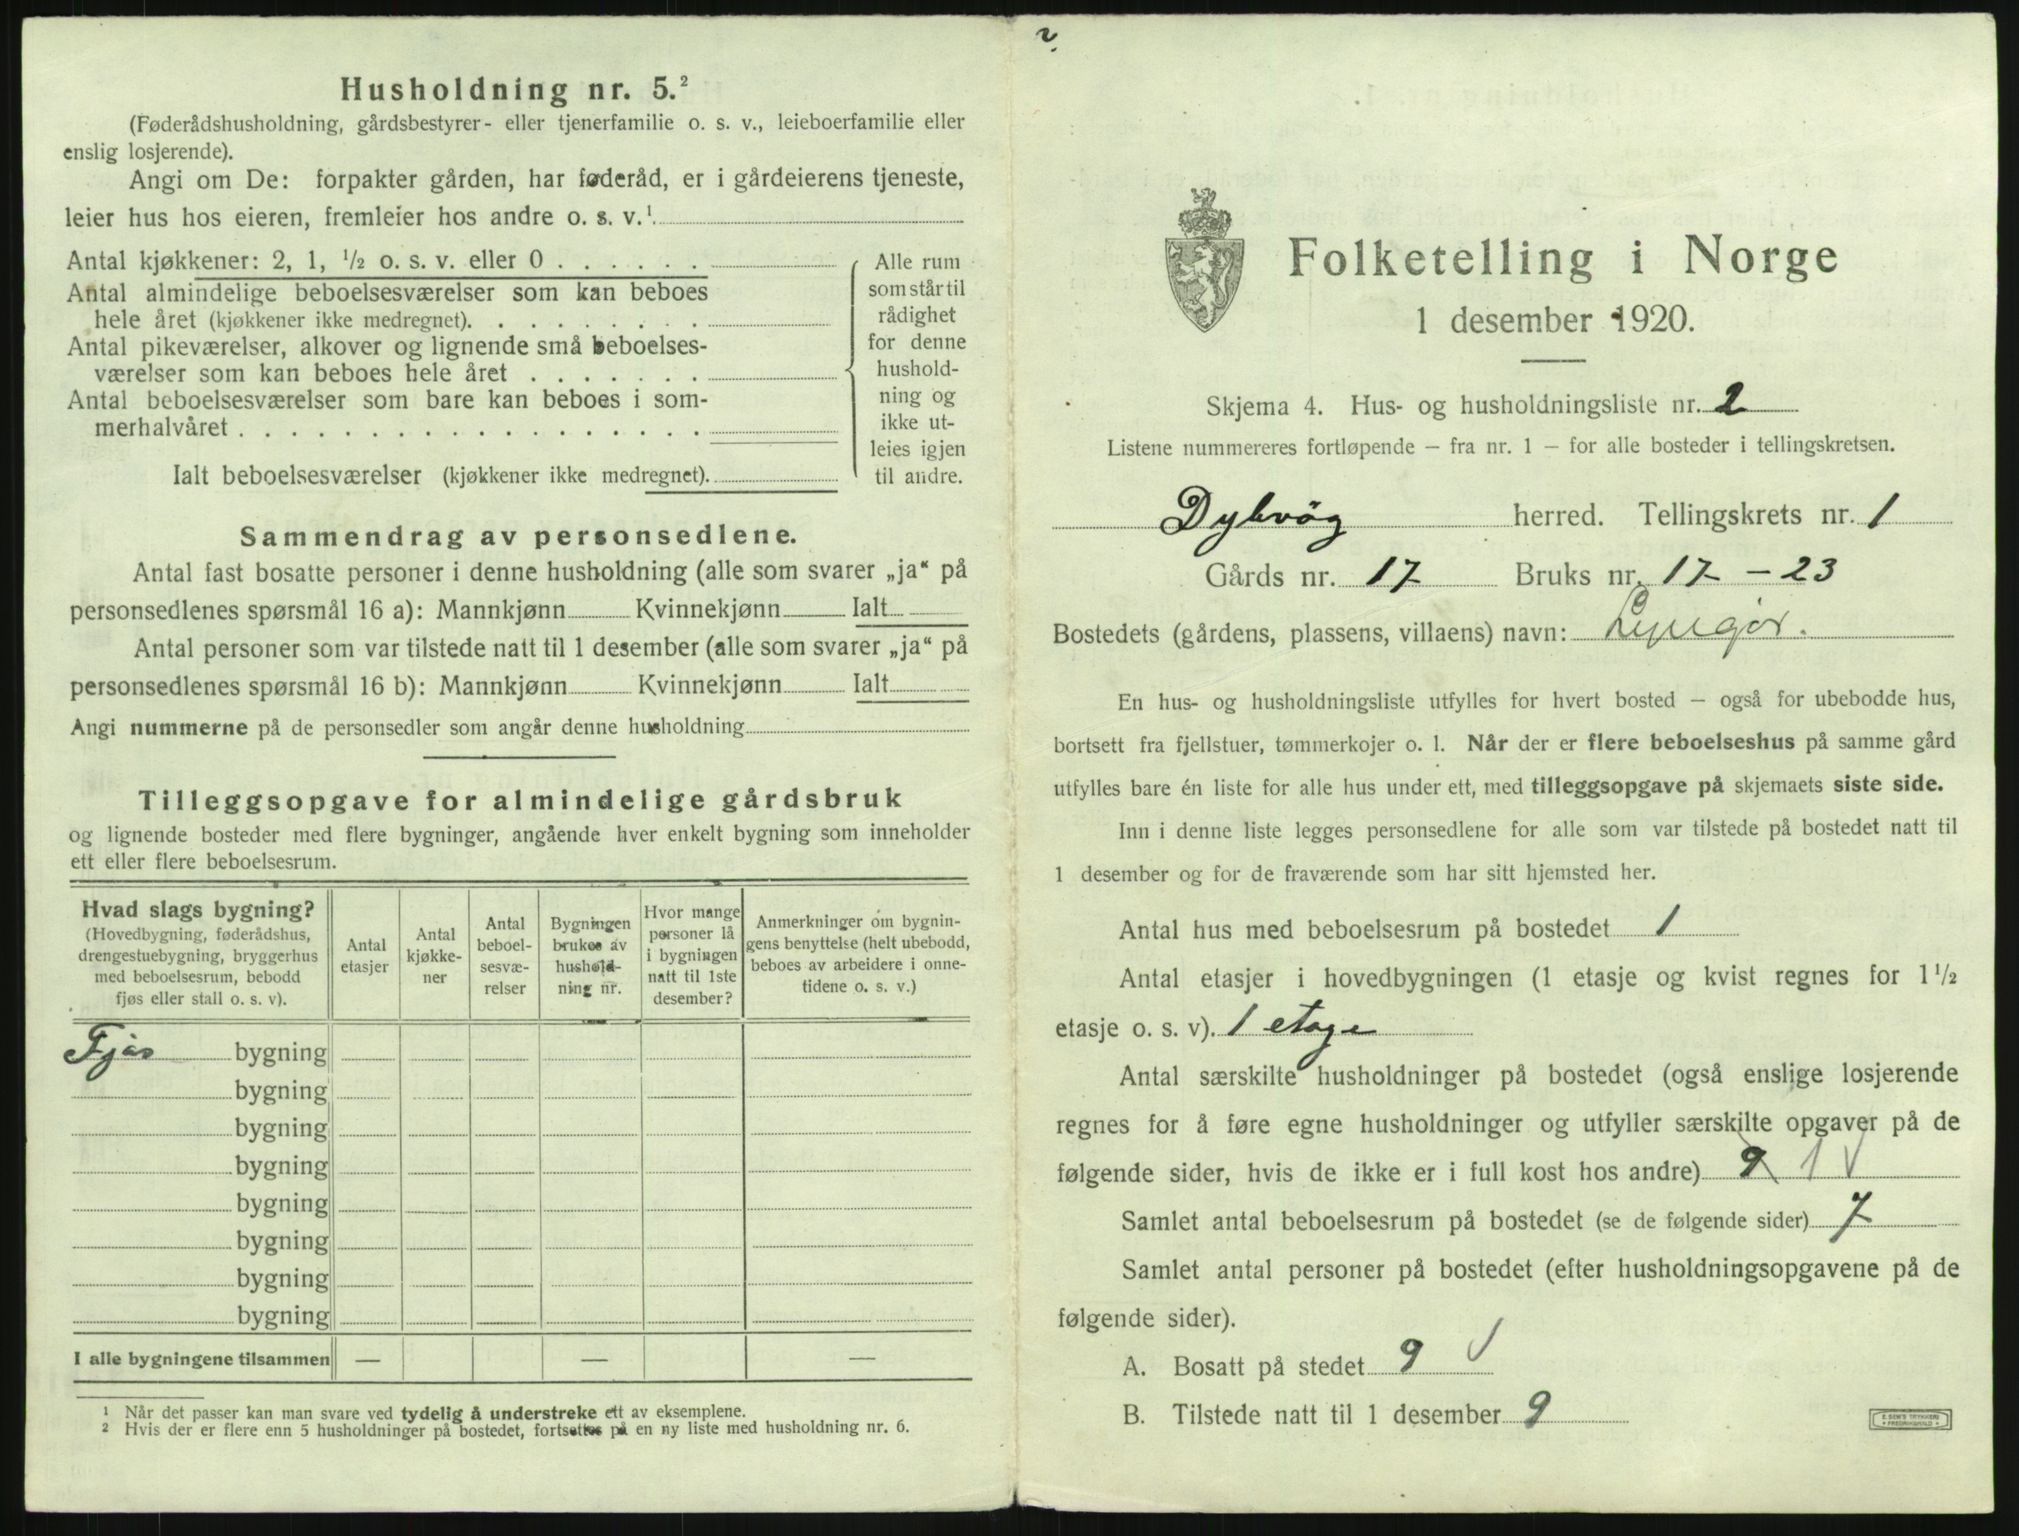 Husholdning nr. 5.²
(Føderådshusholdning, gårdsbestyrer- eller tjenerfamilie o. s. v., leieboerfamilie eller
enslig losjerende).
Angi om De: forpakter gården, har føderåd, er i gårdeierens tjeneste,
leier hus hos eieren, fremleier hos andre o. s. v.¹
Antal kjøkkener: 2, 1, ½ o. s. v. eller 0 . . . . . .
Antal almindelige beboelsesværelser som kan beboes
hele året (kjøkkener ikke medregnet). . . . . . . . .
Antal pikeværelser, alkover og lignende små beboelses-
værelser som kan beboes hele året . . . . . . .
Antal beboelsesværelser som bare kan beboes i som-
merhalvåret . . . . . . . . . . . . . . . . . .
Ialt beboelsesværelser (kjøkkener ikke medregnet).
Alle rum
som står til
rådighet
for denne
hushold-
ning og
ikke ut-
leies igjen
til andre.
Sammendrag av personsedlene.
Antal fast bosatte personer i denne husholdning (alle som svarer „ja“ på
personsedlenes spørsmål 16 a): Mannkjønn Kvinnekjønn Ialt
Antal personer som var tilstede natt til 1 desember (alle som svarer „ja“ på
personsedlenes spørsmål 16 b): Mannkjønn Kvinnekjønn Ialt
Angi nummerne på de personsedler som angår denne husholdning
Tilleggsopgave for almindelige gårdsbruk
og lignende bosteder med flere bygninger, angående hver enkelt bygning som inneholder
ett eller flere beboelsesrum.
Hvad slags bygning?
(Hovedbygning, føderådshus,
drengestuebygning, bryggerhus
med beboelsesrum, bebodd
fjøs eller stall o. s. v).
Antal
etasjer
Antal
kjøkke-
ner
Antal
beboel-
sesvæ-
relser
Bygningen
brukes av
hushold-
ning nr.
Hvor mange
personer lå
i bygningen
natt til 1ste
desember?
Anmerkninger om bygnin-
gens benyttelse (helt ubebodd,
beboes av arbeidere i onne-
tidene o. s. v.)
Fjøs bygning
bygning
bygning
bygning
bygning
bygning
bygning
bygning
I alle bygningene tilsammen — — —
¹ Når det passer kan man svare ved tydelig å understreke ett av eksemplene.
² Hvis der er flere enn 5 husholdninger på bostedet, fortsettes på en ny liste med husholdning nr. 6.
Folketelling i Norge
1 desember 1920.
Skjema 4. Hus- og husholdningsliste nr. 2
Listene nummereres fortløpende — fra nr. 1 — for alle bosteder i tellingskretsen.
Dybvåg herred. Tellingskrets nr. 1
Gårds nr. 17 Bruks nr. 17 - 23
Bostedets (gårdens, plassens, villaens) navn: Lyngør.
En hus- og husholdningsliste utfylles for hvert bosted — også for ubebodde hus,
bortsett fra fjellstuer, tømmerkojer o. l. Når der er flere beboelseshus på samme gård
utfylles bare én liste for alle hus under ett, med tilleggsopgave på skjemaets siste side.
Inn i denne liste legges personsedlene for alle som var tilstede på bostedet natt til
1 desember og for de fraværende som har sitt hjemsted her.
Antal hus med beboelsesrum på bostedet 1
Antal etasjer i hovedbygningen (1 etasje og kvist regnes for 1½
etasje o. s. v). 1 etage
Antal særskilte husholdninger på bostedet (også enslige losjerende
regnes for å føre egne husholdninger og utfyller særskilte opgaver på de
følgende sider, hvis de ikke er i full kost hos andre) 9 1 √
Samlet antal beboelsesrum på bostedet (se de følgende sider) 7
Samlet antal personer på bostedet (efter husholdningsopgavene på de
følgende sider).
A. Bosatt på stedet 9 √
B. Tilstede natt til 1 desember 9
E. SEM'S TRYKKERI
FREDRIKSHALD